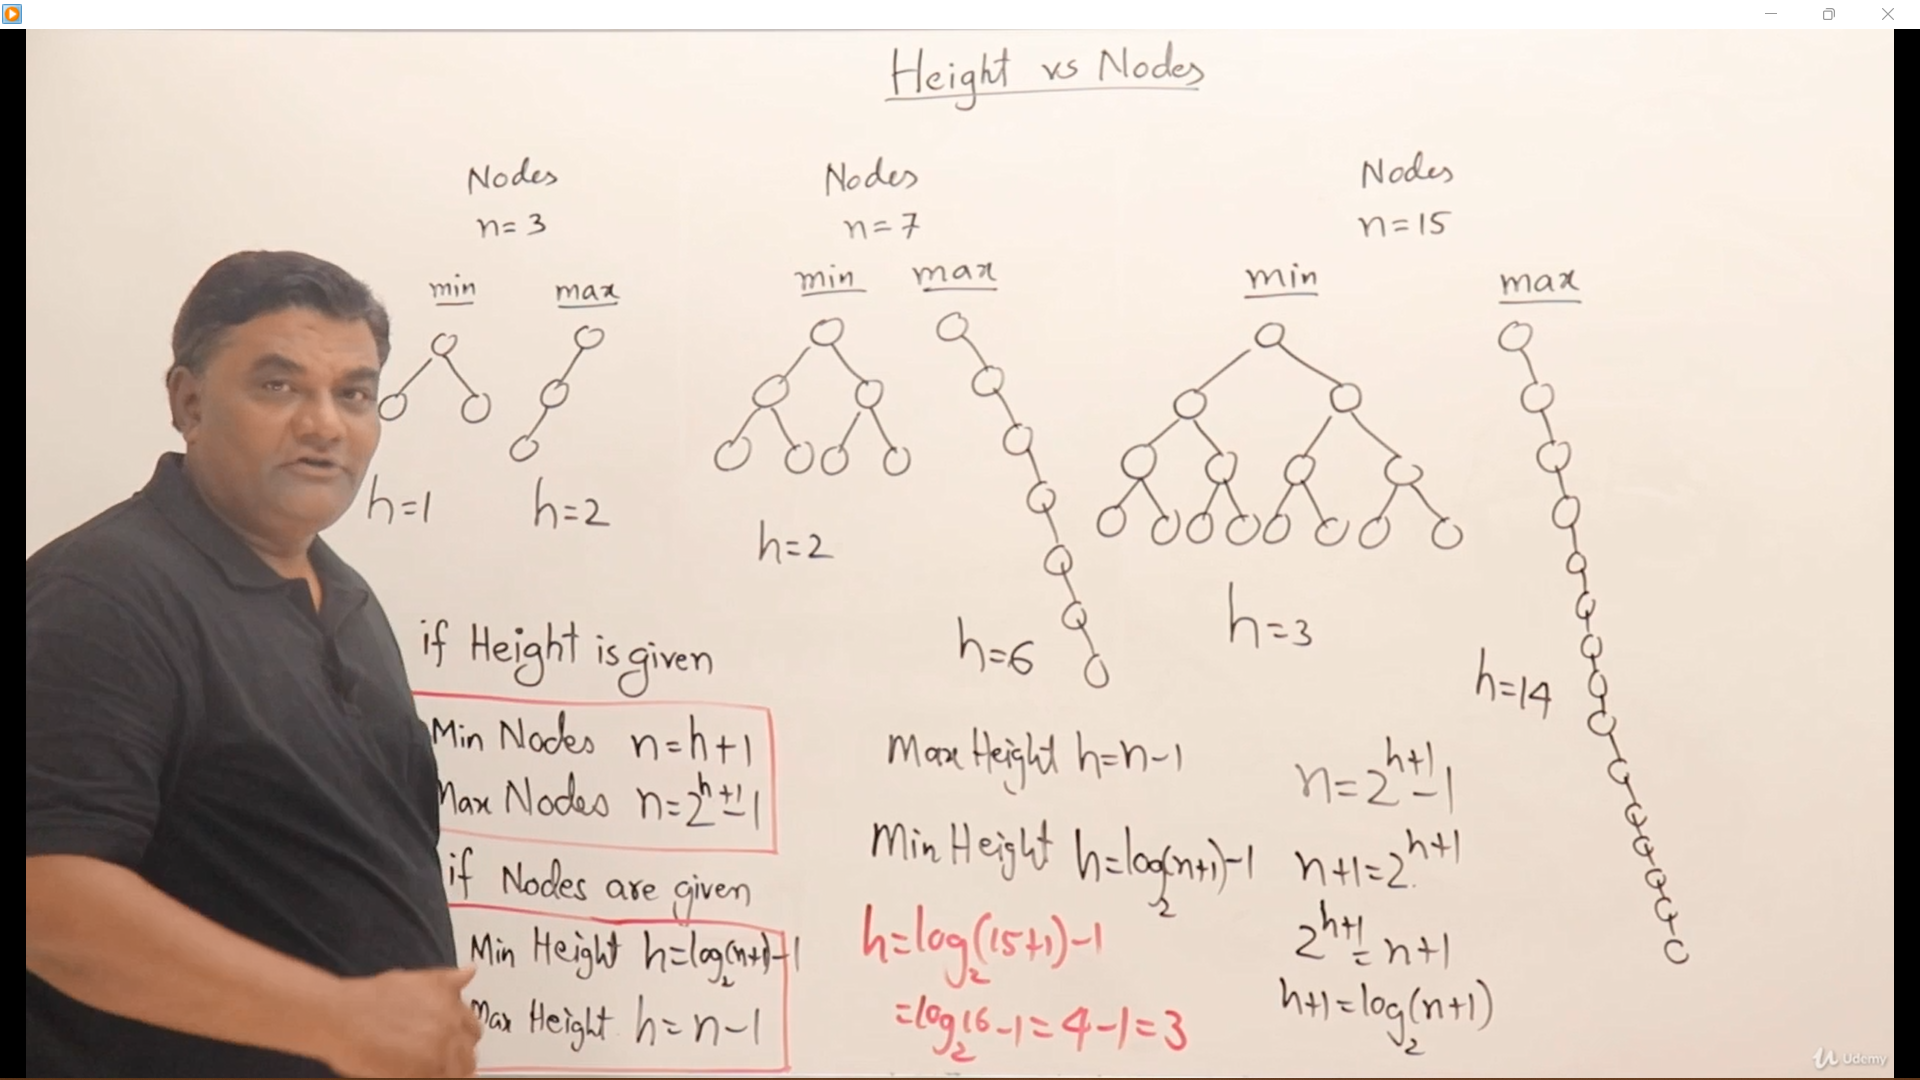 Height vs Nodes
Nodes
n=3
min
max
h=1
h=2
Nodes
n=7
min
max
h=2
h=6
Nodes
n=15
min
max
h=3
h=14
if Height is given
Min Nodes n=h+1
Max Nodes n=2^{h+1}-1
if Nodes are given
Min Height h=log₂(n+1)-1
Max Height h=n-1
Max Height h=n-1
Min Height h=log₂(n+1)-1
h=log₂(15+1)-1
=log₂16-1=4-1=3
n=2^{h+1}-1
n+1=2^{h+1}
2^{h+1}=n+1
h+1=log₂(n+1)
Udemy